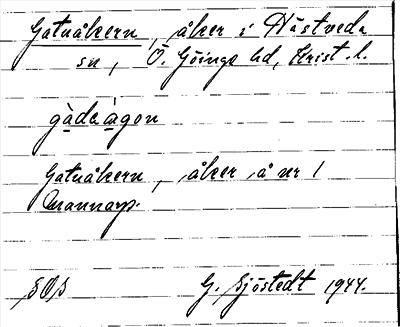 Gatuåkern, åker i Hästveda
sn, Ö. Göinge hd, Krist. l.
gàdaågon
Gatuåkern, åker å nr 1
Mannarp.
SOS
G. Sjöstedt 1944.